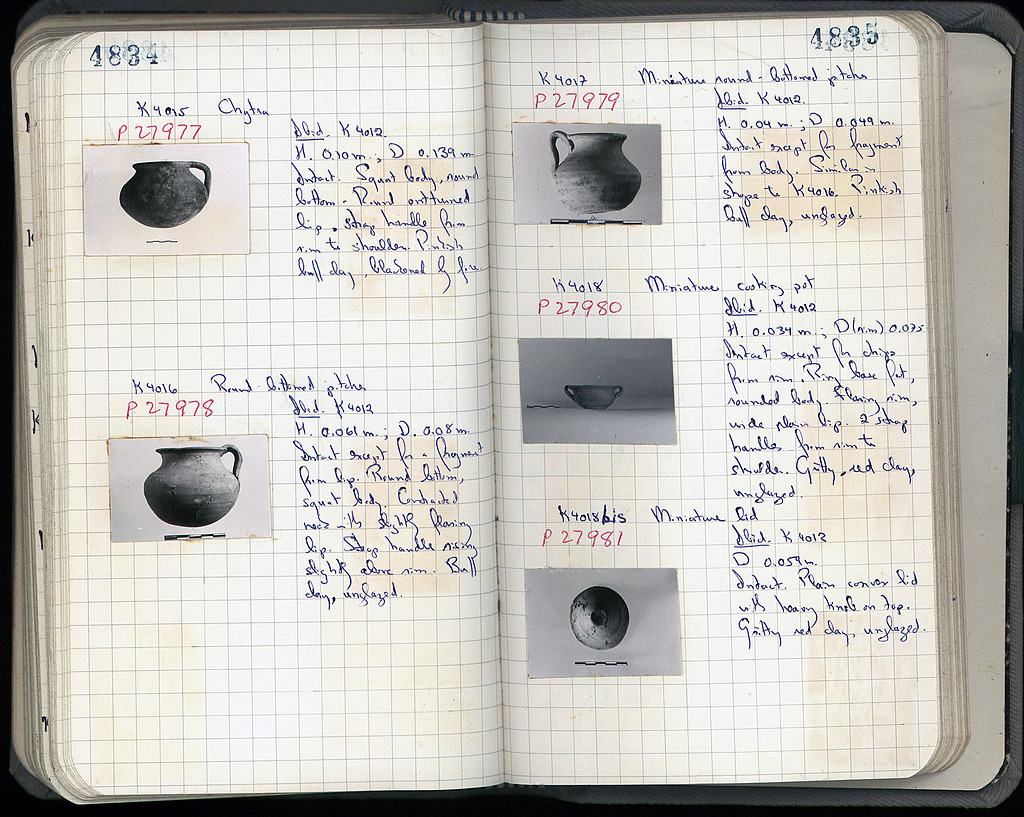 4834
K 4015 Chytra
P 27977
Ibid. K 4012.
H. 0.10 m.; D 0.139 m.
Intact. Squat body, round
bottom. Round outturned
lip, strap handle from
rim to shoulder. Pinkish
buff clay, blackened by fire.
K 4016 Round-bottomed pitcher
P 27978
Ibid. K 4012
H. 0.061 m.; D. 0.08 m.
Intact except for a fragment
from lip. Round bottom,
squat body. Contracted
neck with slightly flaring
lip. Strap handle rising
slightly above rim. Buff
clay, unglazed.
4835
K 4017 Miniature round-bottomed pitcher
P 27979
Ibid. K 4012.
H. 0.04 m.; D 0.049 m.
Intact except for fragment
from body. Similar in
shape to K 4016. Pinkish
buff clay, unglazed.
K 4018 Miniature cooking pot
P 27980
Ibid. K 4012
H. 0.034 m.; D (rim) 0.075
Intact except for chips
from rim. Ring base flat,
rounded body. Flaring rim,
wide plain lip. 2 strap
handles from rim to
shoulder. Gritty, red clay,
unglazed.
K 4018 bis Miniature lid
P 27981
Ibid. K 4012
D 0.059 m.
Intact. Plain convex lid
with heavy knob on top.
Gritty red clay, unglazed.